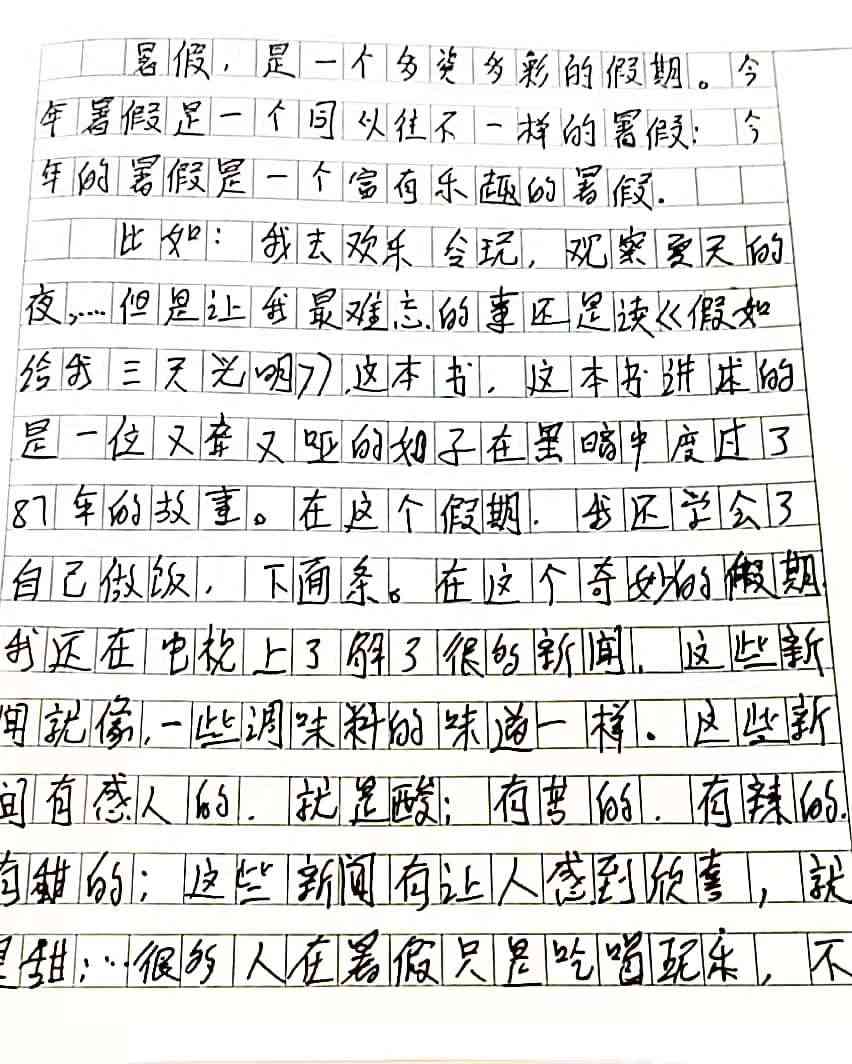 暑假，是一个多姿多彩的假期。今
年暑假是一个同以往不一样的暑假：今
年的暑假是一个富有乐趣的暑假．
比如：我去欢乐谷玩，观察夏天的
夜，…但是让我最难忘的事还是读《假如
给我三天光明》，这本书．这本书讲述的
是一位又聋又哑的妇子在黑暗中度过了
87年的故事。在这个假期．我还学会了
自己做饭，下面条。在这个奇妙的假期，
我还在电视上了解了很多新闻．这些新
闻就像，一些调味料的味道一样．这些新
闻有感人的．就是酸；有苦的．有辣的．
有甜的；这些新闻有让人感到欣喜，就
是甜；…很多人在暑假只是吃喝玩乐，不